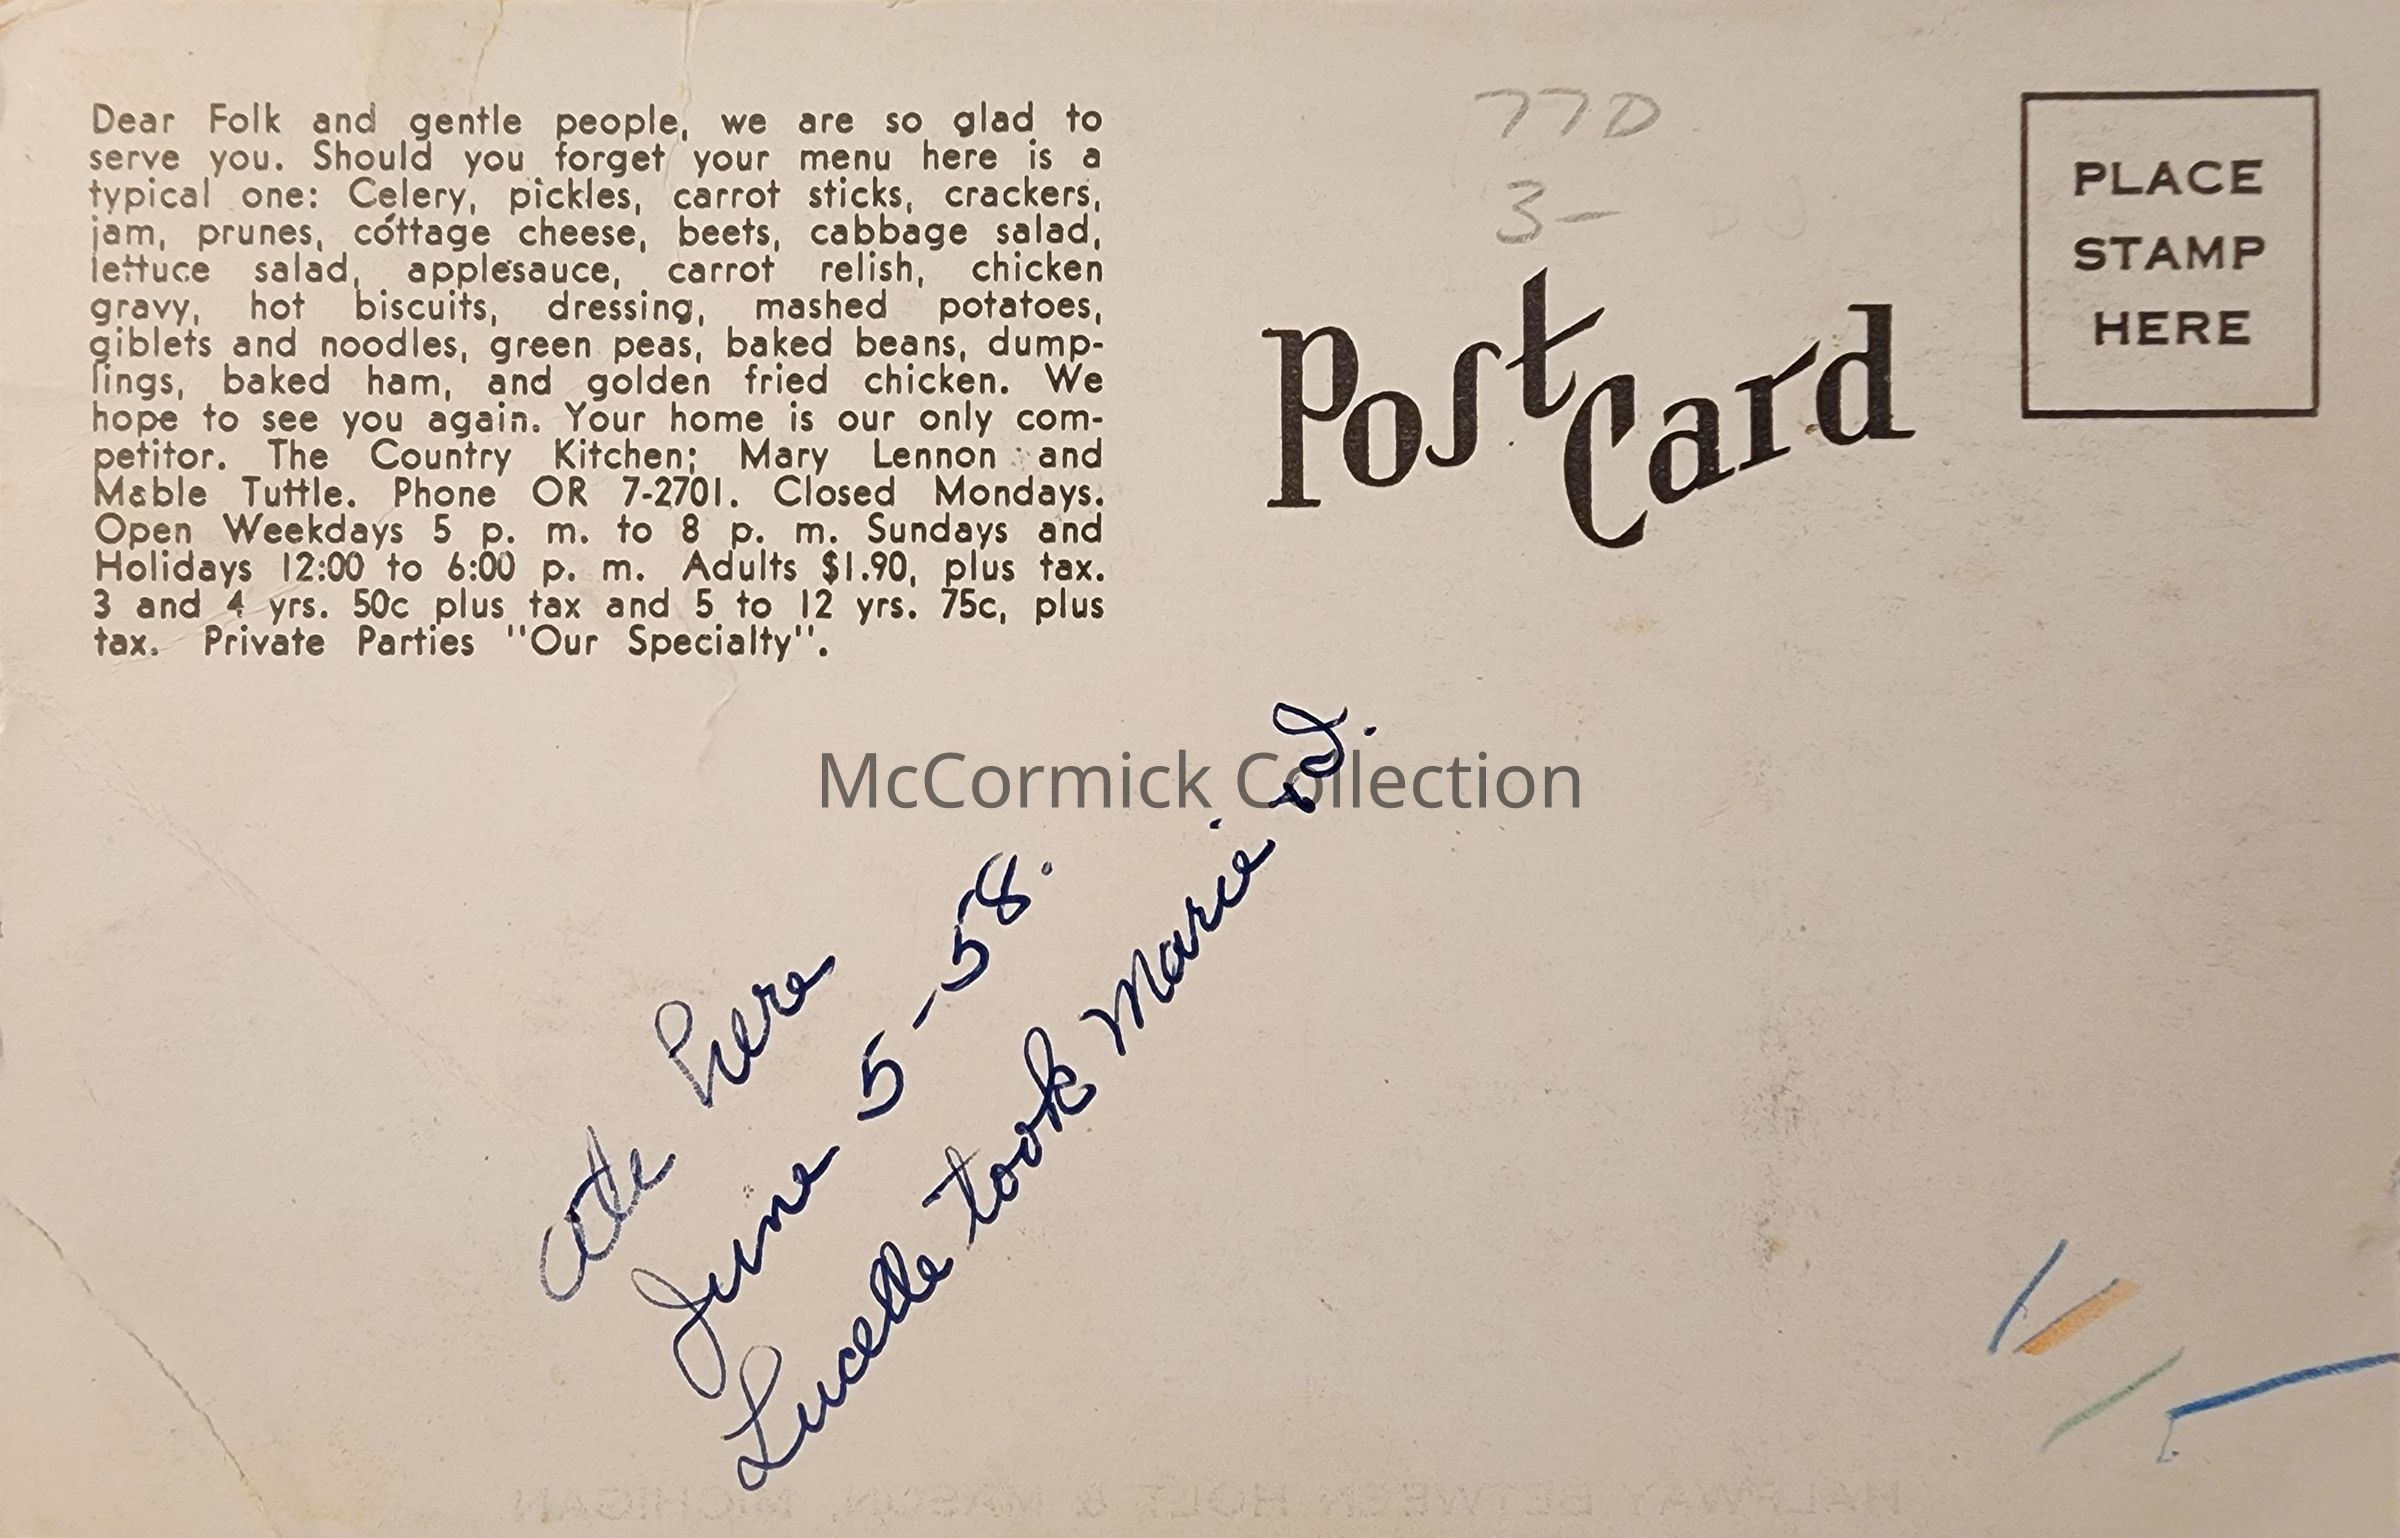 Dear Folk and gentle people, we are so glad to
serve you. Should you forget your menu here is a
typical one: Celery, pickles, carrot sticks, crackers,
jam, prunes, cottage cheese, beets, cabbage salad,
lettuce salad, applesauce, carrot relish, chicken
gravy, hot biscuits, dressing, mashed potatoes,
giblets and noodles, green peas, baked beans, dump-
lings, baked ham, and golden fried chicken. We
hope to see you again. Your home is our only com-
petitor. The Country Kitchen; Mary Lennon and
Mable Tuttle. Phone OR 7-2701. Closed Mondays.
Open Weekdays 5 p. m. to 8 p. m. Sundays and
Holidays 12:00 to 6:00 p. m. Adults $1.90, plus tax.
3 and 4 yrs. 50c plus tax and 5 to 12 yrs. 75c, plus
tax. Private Parties "Our Specialty".
77D
3-
Post Card
PLACE
STAMP
HERE
McCormick Collection
Ate here
June 5-58.
Lucelle took Marie
HALFWAY BETWEEN HOLT & MASON, MICHIGAN